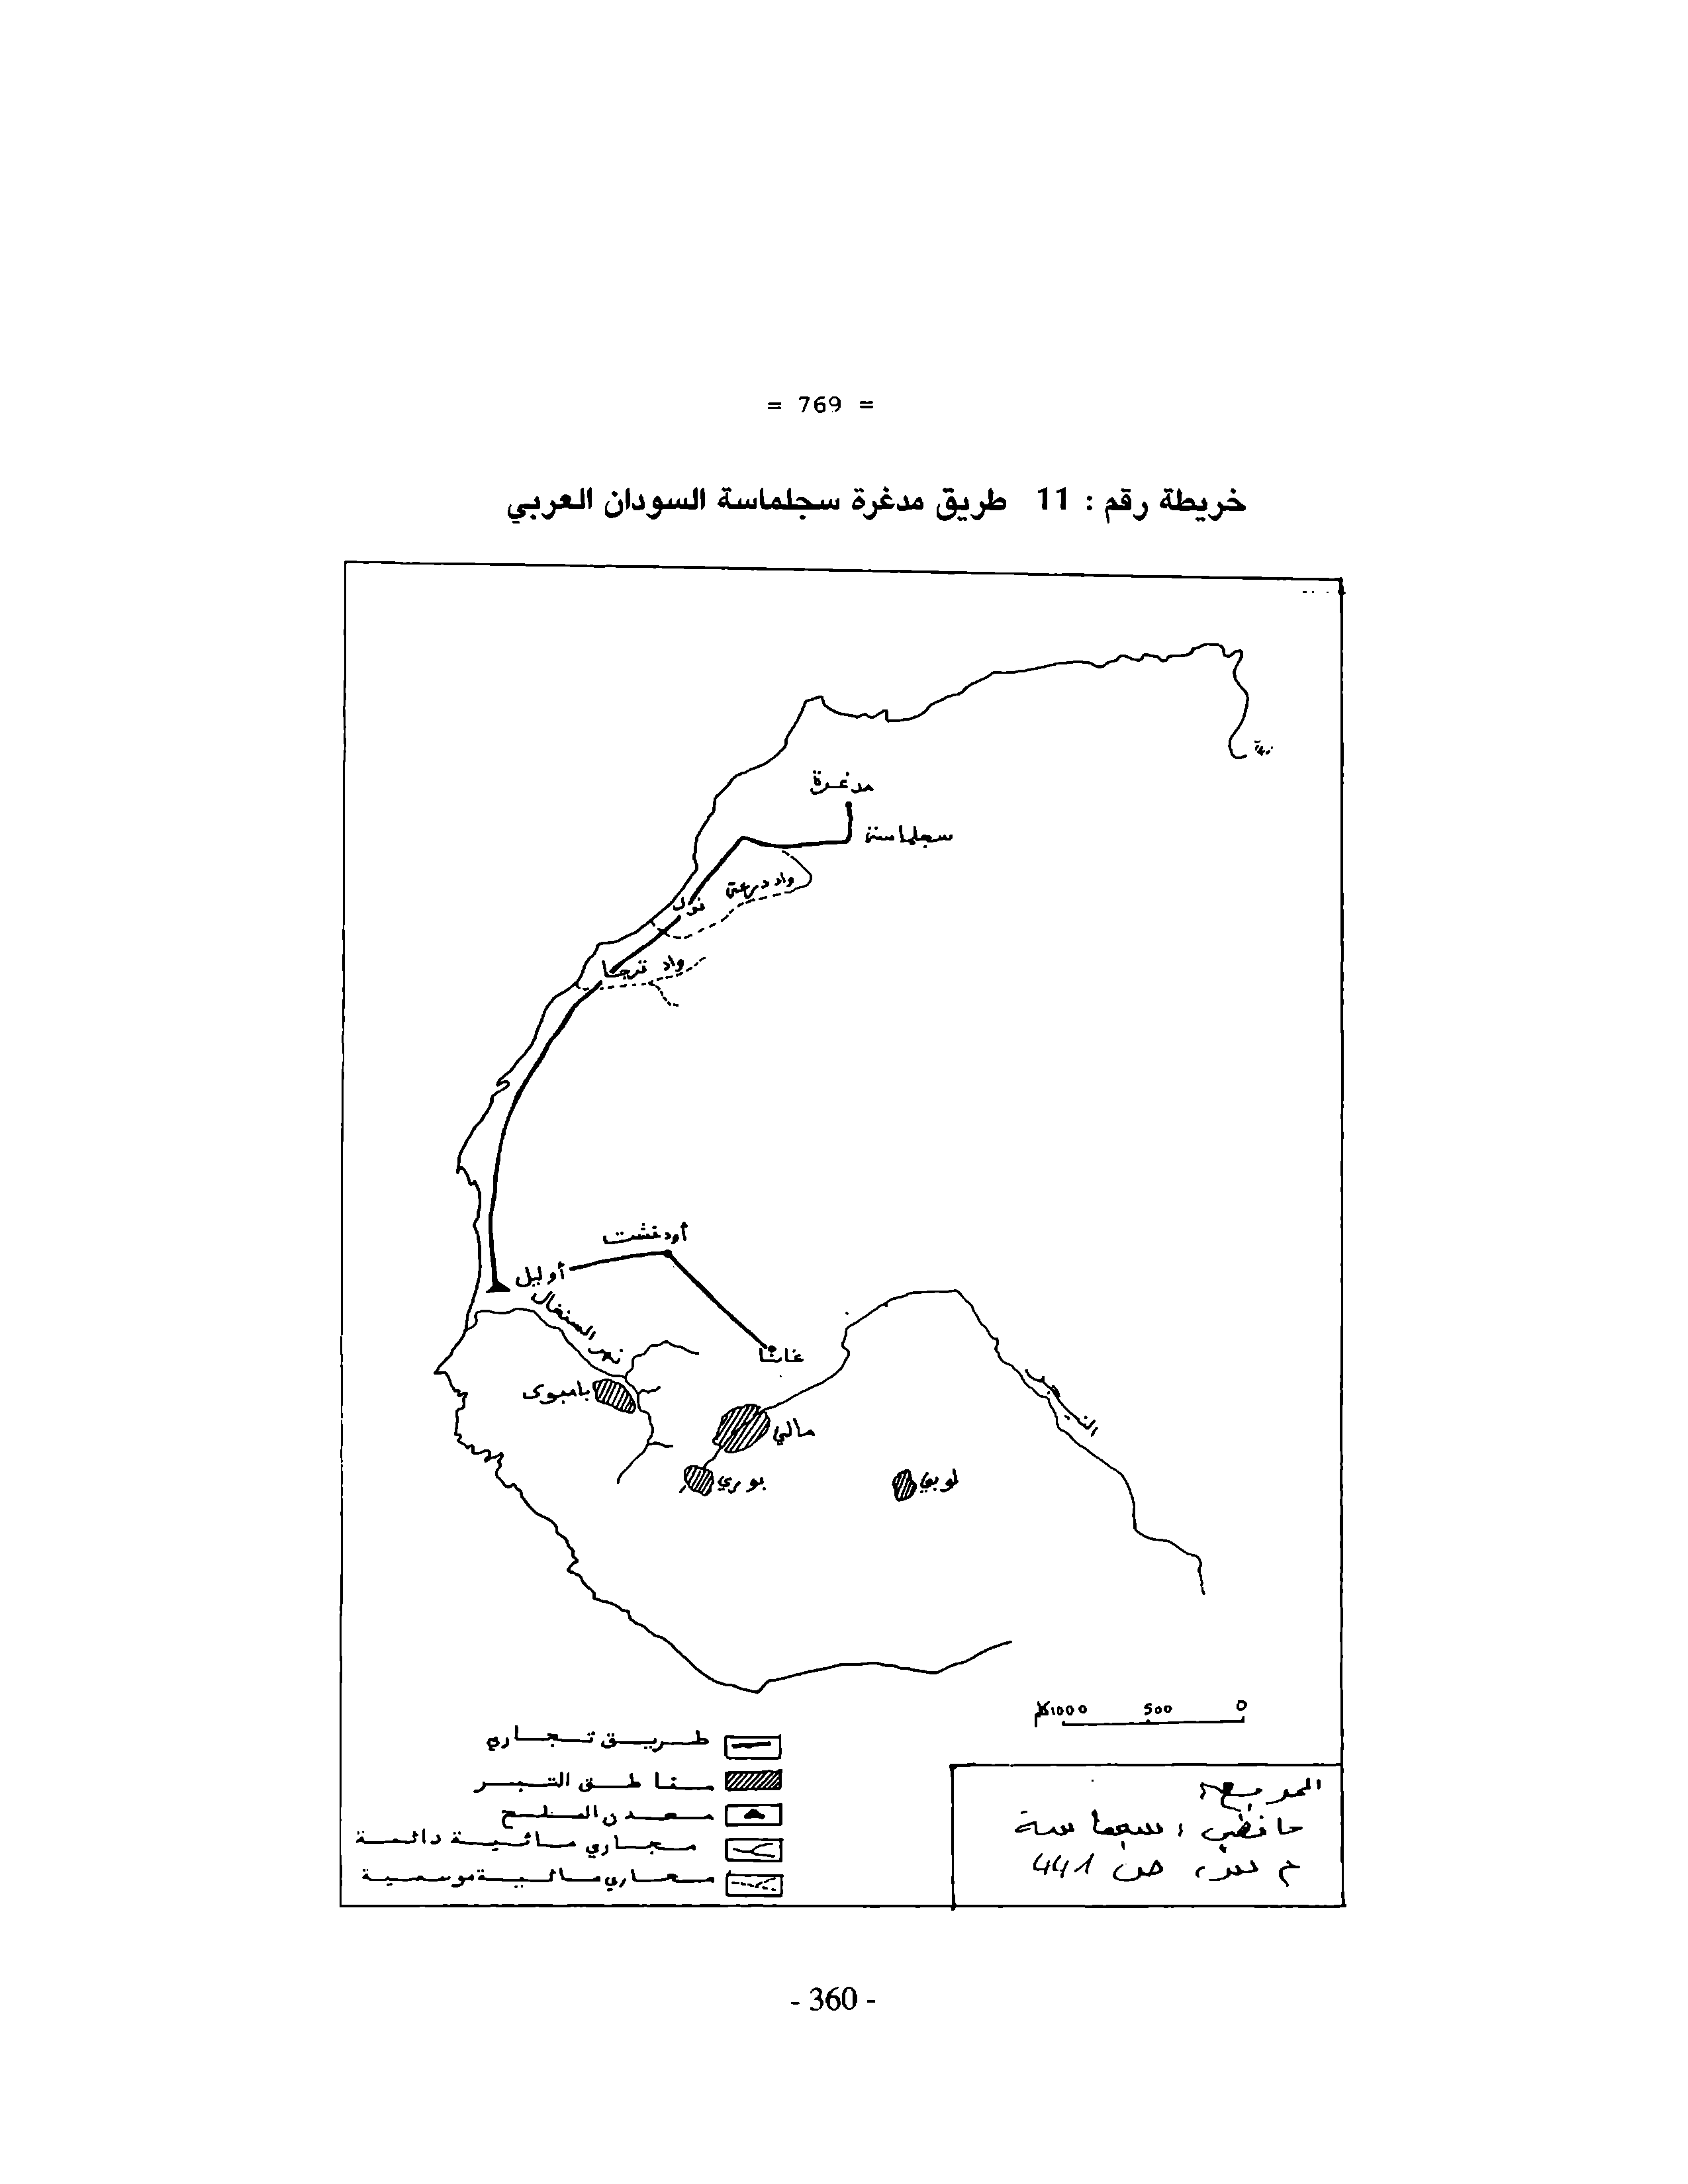 = 769 =
خريطة رقم : 11 طريق مدغرة سجلماسة السودان العربي
مدغرة
سجلماسة
واد درعة
نول
واد ترجا
أودغشت
أوليل
نهر السنغال
غانا
بامبوك
مالي
بوري
لوبي
النيجر
0 500 1000كلم
طريق تجاري
مناطق التبر
معدن الملح
مجاري مائية دائمة
مجاري مائية موسمية
المرجع:
حافظي ، سجلماسة
م س، ص 441
- 360 -